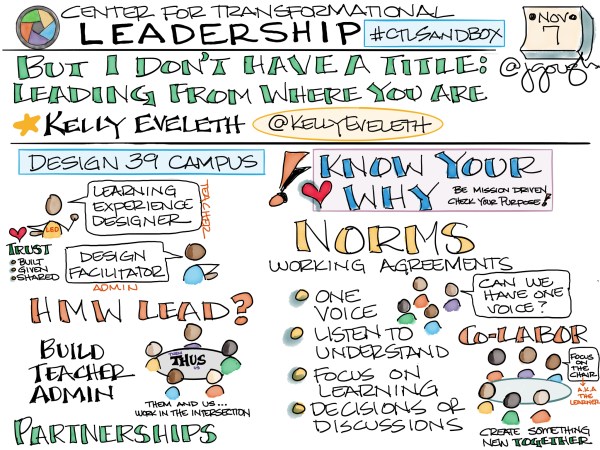 CENTER FOR TRANSFORMATIONAL
LEADERSHIP
#CTLSANDBOX
NOV
7
@jgough
BUT I DON'T HAVE A TITLE:
LEADING FROM WHERE YOU ARE
KELLY EVELETH
@KELLYEVELETH
DESIGN 39 CAMPUS
LEARNING
EXPERIENCE
DESIGNER
TEACHER
LED
TRUST
BUILT
GIVEN
SHARED
DESIGN
FACILITATOR
ADMIN
HMW LEAD?
BUILD
TEACHER
ADMIN
THEM
THUS
US
THEM AND US...
WORK IN THE INTERSECTION
PARTNERSHIPS
KNOW YOUR
WHY
BE MISSION DRIVEN
CHECK YOUR PURPOSE!
NORMS
WORKING AGREEMENTS
ONE
VOICE
LISTEN TO
UNDERSTAND
FOCUS ON
LEARNING
DECISIONS OR
DISCUSSIONS
CAN WE
HAVE ONE
VOICE?
CO-LABOR
FOCUS
ON
THE
CHAIR
A.K.A
THE
LEARNER
CREATE SOMETHING
NEW TOGETHER